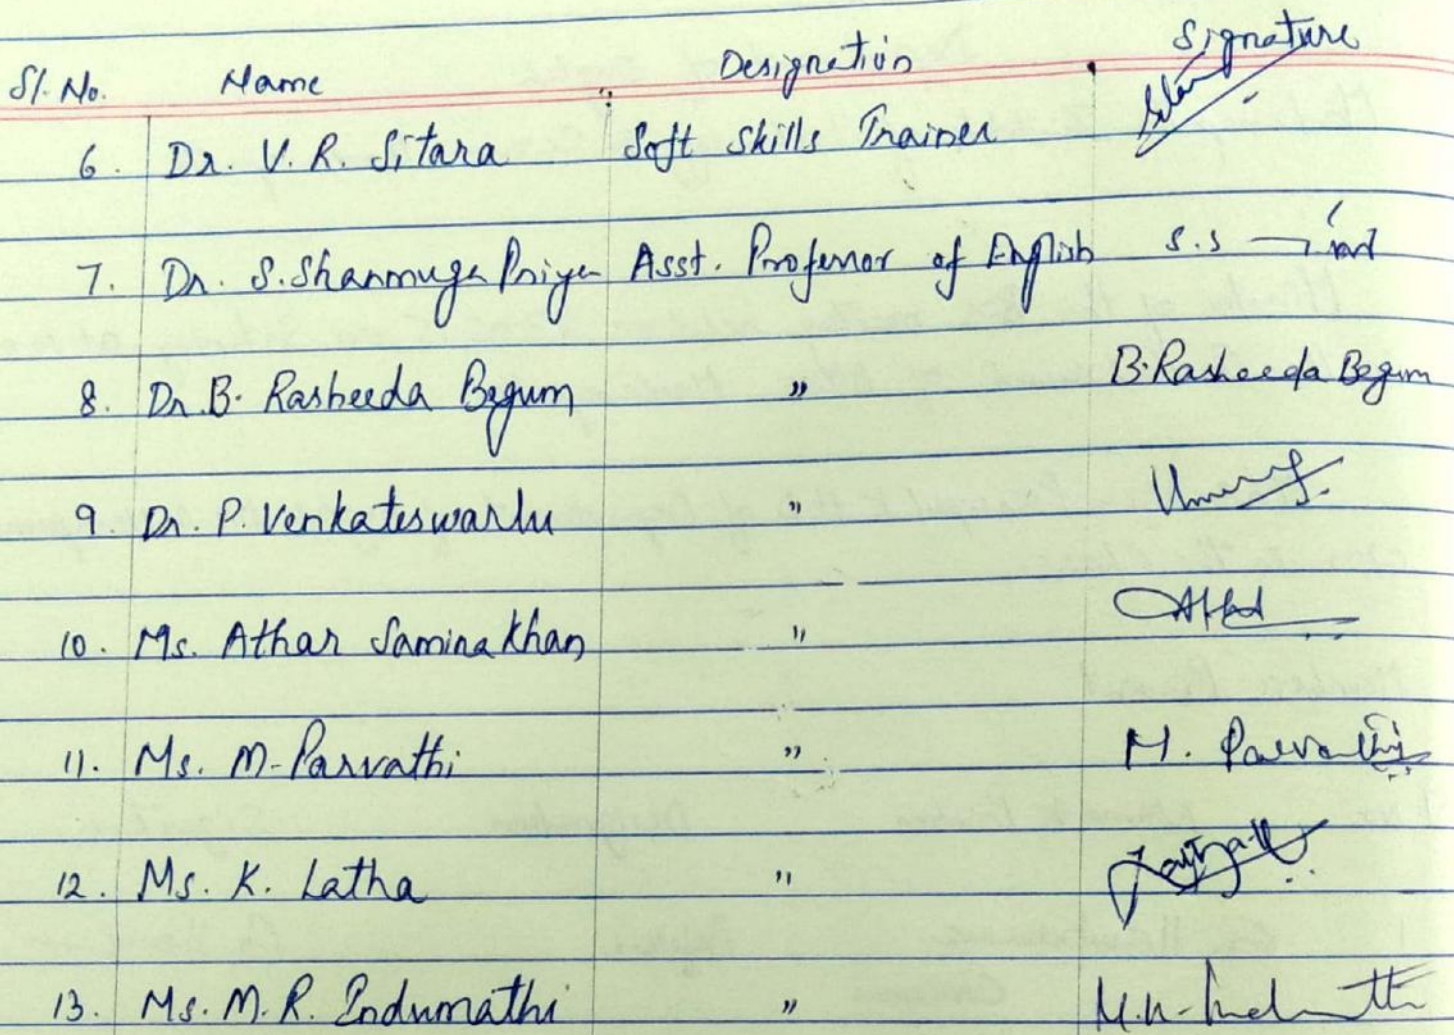 Sl. No. Name Designation Signature
6. Dr. V. R. Sitara Soft Skills Trainer
7. Dr. S. Shanmuga Priya Asst. Professor of English S.S
8. Dr. B. Rasheeda Begum " B. Rasheeda Begum
9. Dr. P. Venkateswarlu "
10. Ms. Athar Samina Khan "
11. Ms. M. Parvathi " M. Parvathi
12. Ms. K. Latha "
13. Ms. M. R. Indumathi "